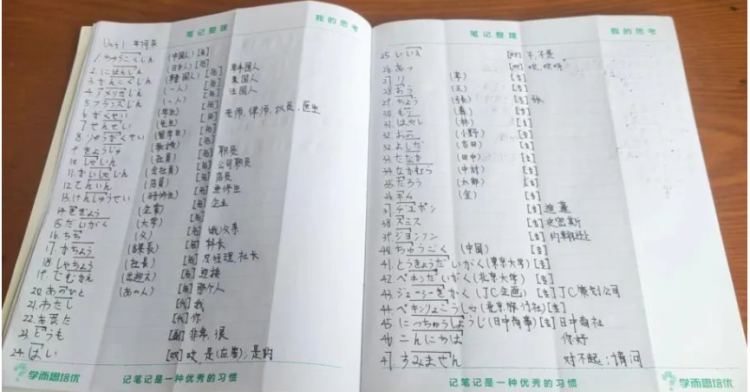 笔记整理
我的思考
Unit 1 单词表
1. ちゅうごくじん (中国人) [名]
2. にほんじん (日本人) [名] 日本国人
3. かんこくじん (韓国人) [名]
4. アメリカじん (ー人) [名] 美国人
5. フランスじん (ー人) [名] 法国人
6. がくせい (学生) [名]
7. せんせい (先生) [名] 老师,律师,议员,医生
8. りゅうがくせい (留学生) [名]
9. きょうじゅ (教授) [名]
10. しゃいん (社員) [名] 职员
11. かいしゃいん (会社員) [名] 公司职员
12. てんいん (店員) [名] 店员
13. けんしゅうせい (研修生) [名] 进修生
14. きぎょう (企業) [名] 企业
15. だいがく (大学) [名]
16. ちち (父) [名]
17. かちょう (課長) [名] 科长
18. しゃちょう (社長) [名] 总经理,社长
19. でむかえ (出迎え) [名] 迎接
20. あのひと (あの人) [名] 那个人
21. わたし [代] 我
22. あなた [代] 你
23. どうも [副] 非常,很
24. はい [叹] 是(应答);是的
学而思培优
记笔记是一种优秀的习惯
笔记整理
我的思考
25. いいえ [叹] 不,不是
26. あっ [叹] 哎,哎呀
27. り (李) [专]
28. おう (王) [专]
29. ちょう (張) [专] 张
30. もり (森) [专]
31. はやし (林) [专]
32. おの (小野) [专]
33. よしだ (吉田) [专]
34. たなか (田中) [专]
35. なかむら (中村) [专]
36. たろう (太郎) [专]
37. キム (金) [专]
38. デュポン [专] 迪蓬
39. スミス [专] 史密斯
40. ジョンソン [专] 约翰逊
40. ちゅうごく (中国) [专]
41. とうきょうだいがく (東京大学) [专]
42. ペキンだいがく (北京大学) [专]
43. ジェーシーきかく (JC企画) [专] JC策划公司
44. ペキンりょこうしゃ (北京旅行社) [专]
45. にっちゅうしょうじ (日中商事) [专] 日中商社
46. こんにちは 你好
47. すみません 对不起;请问
记笔记是一种优秀的习惯
学而思培优